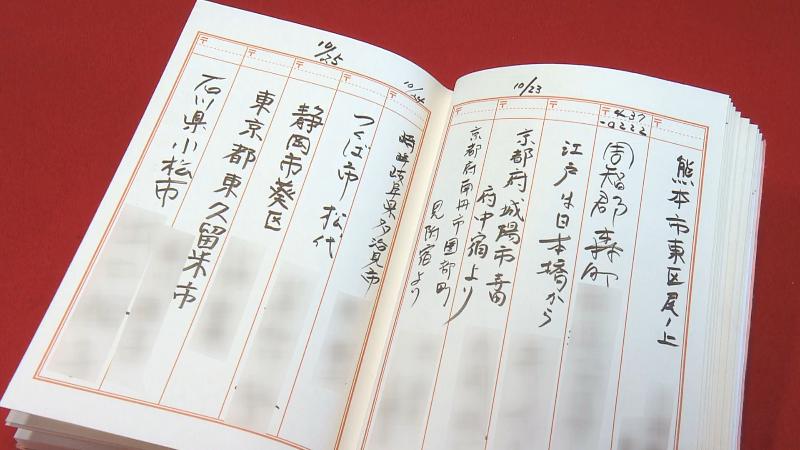 熊本市東区尾ノ上
437
-0222
周智郡森町
江戸は日本橋から
10/23
京都府城陽市寺田
府中宿より
京都府南丹市園部町
見附宿より
10/24
岐阜県多治見市
つくば市 松代
10/25
静岡市葵区
東京都東久留米市
石川県小松市